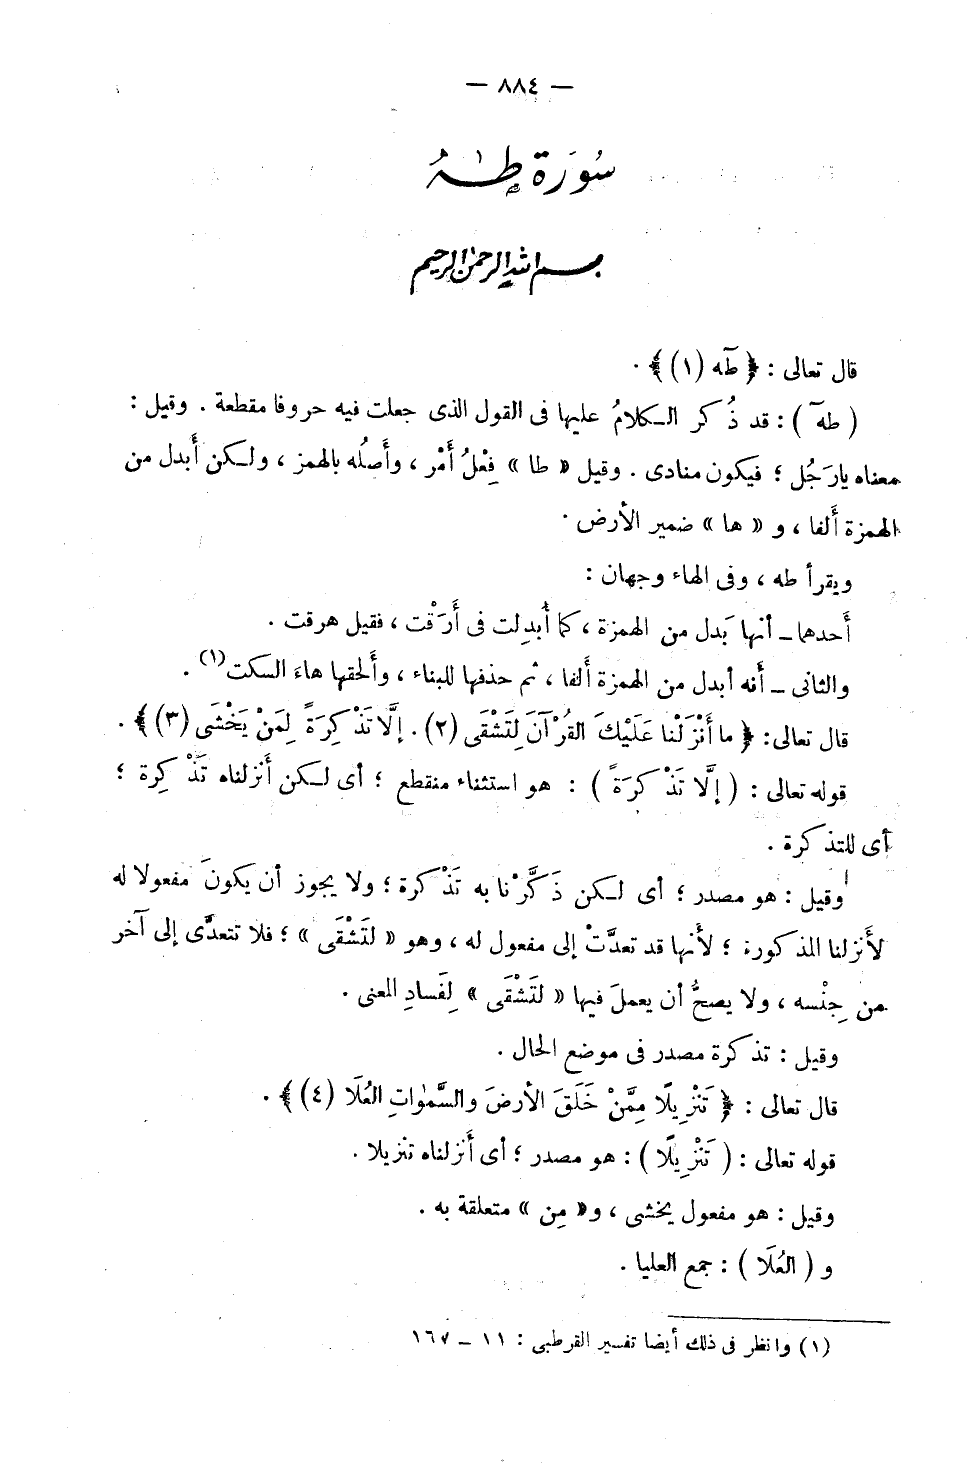 — ٨٨٤ —
سُورَة طٰهٰ
بسم الله الرحمٰن الرحيم
قال تعالى : ﴿ طَه (١) ﴾ .
( طهَ ) : قد ذُكر الـكلامُ عليها فى القول الذى جعلت فيه حروفا مقطعة . وقيل :
معناه يارَجُل ؛ فيكون منادى . وقيل « طا » فِعْلُ أَمْر ، وأَصلُه بالهمز ، ولـكن أَبدل من
الهمزة أَلفا ، و « ها » ضمير الأَرض .
ويقرأ طه ، وفى الهاء وجهان :
أَحدهما ـ أنها بَدل من الهمزة ، كما أُبدِلت فى أَرَقْت ، فقيل هرقت .
والثانى ـ أَنه أبدل من الهمزة أَلفا ، ثم حذفها للبناء ، وأَلحقها هاءَ السكت(١) .
قال تعالى: ﴿ ما أَنْزَلْنا عَلَيْكَ القُرْآنَ لِتَشْقَى (٢) . إلَّا تَذْكِرَةً لِمَنْ يَخْشَى (٣) ﴾ .
قوله تعالى : ( إلَّا تَذْكرَةً ) : هو استثناء منقطع ؛ أى لـكن أَنزلناه تَذْكِرة ؛
أى للتذكرة .
وقيل : هو مصدر ؛ أى لـكن ذَكَّرْنا به تَذْكرة ؛ ولا يجوز أن يكونَ مفعولا له
لأَنزلنا المذكورة ؛ لأَنها قد تعدَّتْ إلى مفعول له ، وهو « لتَشْقَى » ؛ فلا تتعدَّى إلى آخر
من جِنْسه ، ولا يصحُّ أن يعملَ فيها « لتَشْقَى » لِفَسادِ المعنى .
وقيل : تذكرة مصدر فى موضع الحال .
قال تعالى : ﴿ تَنْزِيلًا مِمَّنْ خَلَقَ الأَرضَ والسَّمٰواتِ العُلَا (٤) ﴾ .
قوله تعالى : ( تَنْزِيلًا ) : هو مصدر ؛ أى أَنزلناه تنزيلا .
وقيل : هو مفعول يخشى ، و« مِن » متعلقة به .
و ( العُلَا ) : جمع العليا .
(١) وانظر فى ذلك أيضا تفسير القرطبى : ١١ ـ ١٦٧